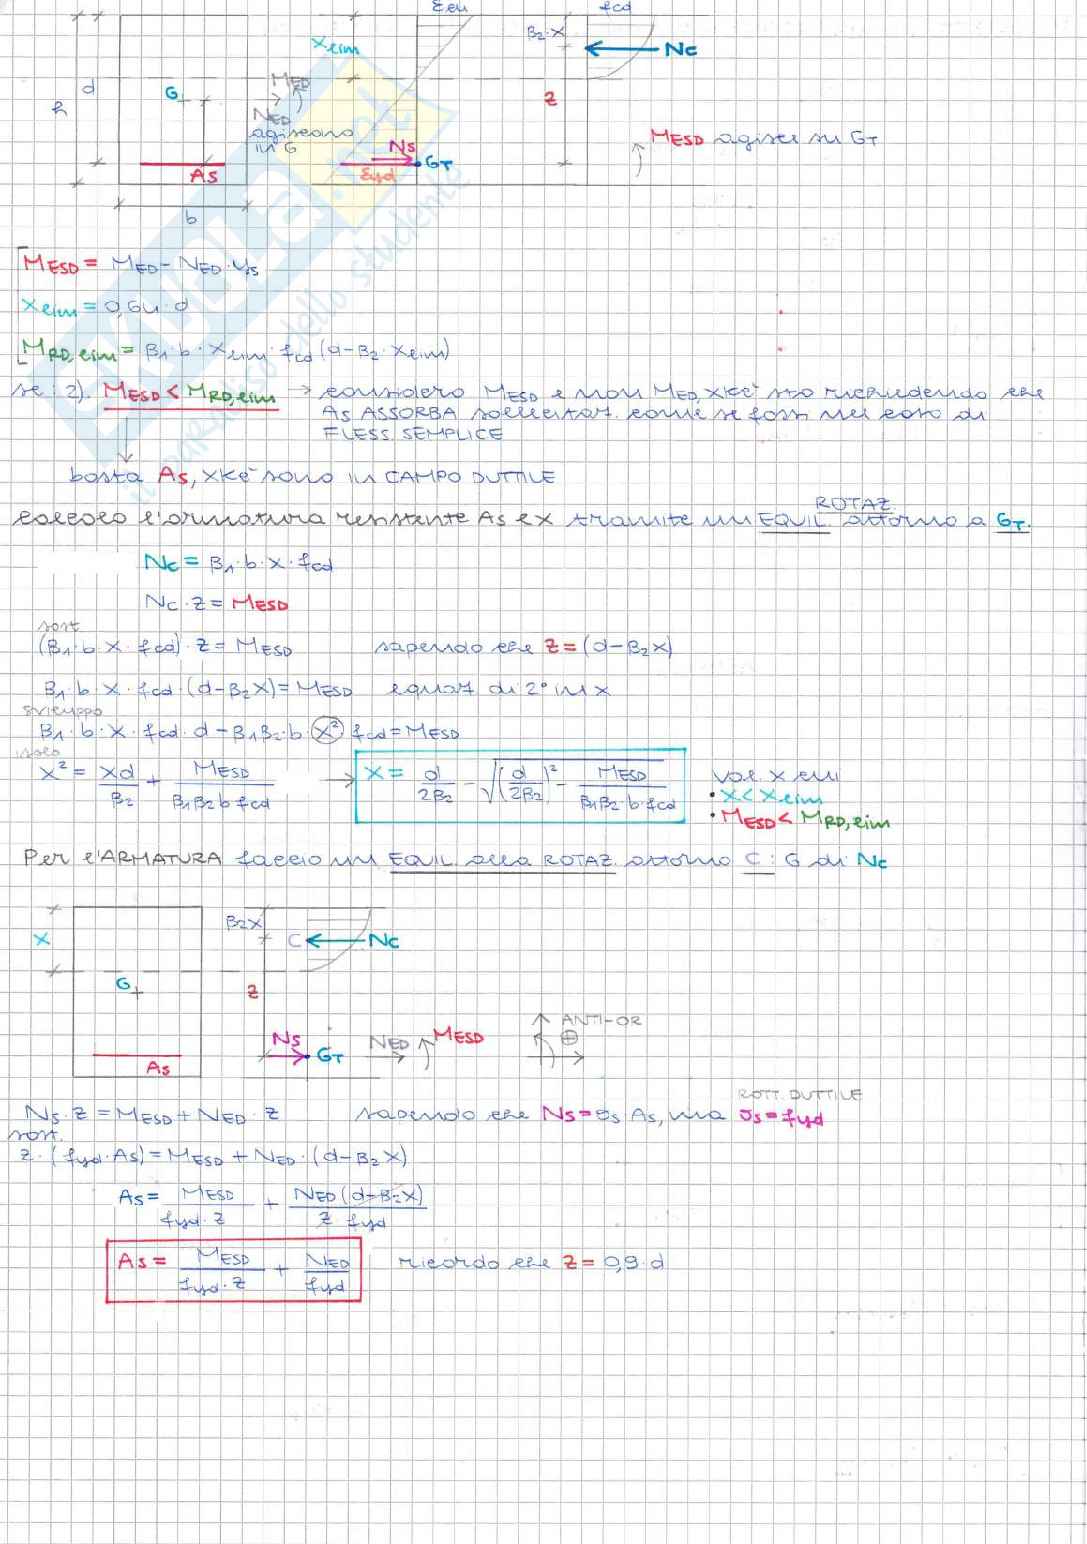 εcu fcd
xlim β2·x Nc
d G MED z
h NED
agiscono
in G
Ns GT MESD agisce su GT
As εyd
b
MESD = MED - NED·ys
xlim = 0,64·d
MRD,lim = β1·b·xlim·fcd (d-β2·xlim)
se: 2). MESD < MRD,lim → considero MESD e non MED, xkè sto richiedendo che
As ASSORBA sollecitaz. come se foss nel caso di
FLESS. SEMPLICE
basta As, xkè sono in CAMPO DUTTILE
calcolo l'armatura resistente As e x tramite un EQUIL. ROTAZ. attorno a GT.
Nc = β1·b·x·fcd
Nc·z = MESD
sost
(β1·b·x·fcd)·z = MESD sapendo che z = (d-β2x)
β1·b·x·fcd·(d-β2x) = MESD equaz di 2° in x
sviluppo
β1·b·x·fcd·d - β1β2·b·x² fcd = MESD
isolo
x² = xd/β2 + MESD/β1β2 b fcd → x = d/2β2 - √(d/2β2)² - MESD/β1β2·b·fcd val. x cui
• x < xlim
• MESD < MRD,lim
Per l'ARMATURA faccio un EQUIL. alla ROTAZ. attorno C: G di Nc
β2x
x C Nc
G z
ANTI-OR
Ns GT NED MESD ⊕
As
Ns·z = MESD + NED·z sapendo che Ns = σs As, ma σs = fyd ROTT. DUTTILE
sost.
z·(fyd·As) = MESD + NED·(d-β2x)
As = MESD/fyd·z + NED(d-β2x)/z fyd
As = MESD/fyd·z + NED/fyd ricordo che z = 0,9·d